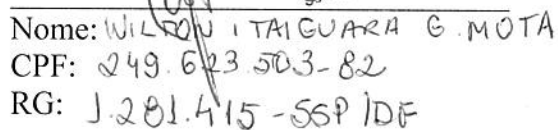 Nome: WILTON ITAIGUARA G. MOTA
CPF: 249.623.503-82
RG: 1.281.415-SSP/DF